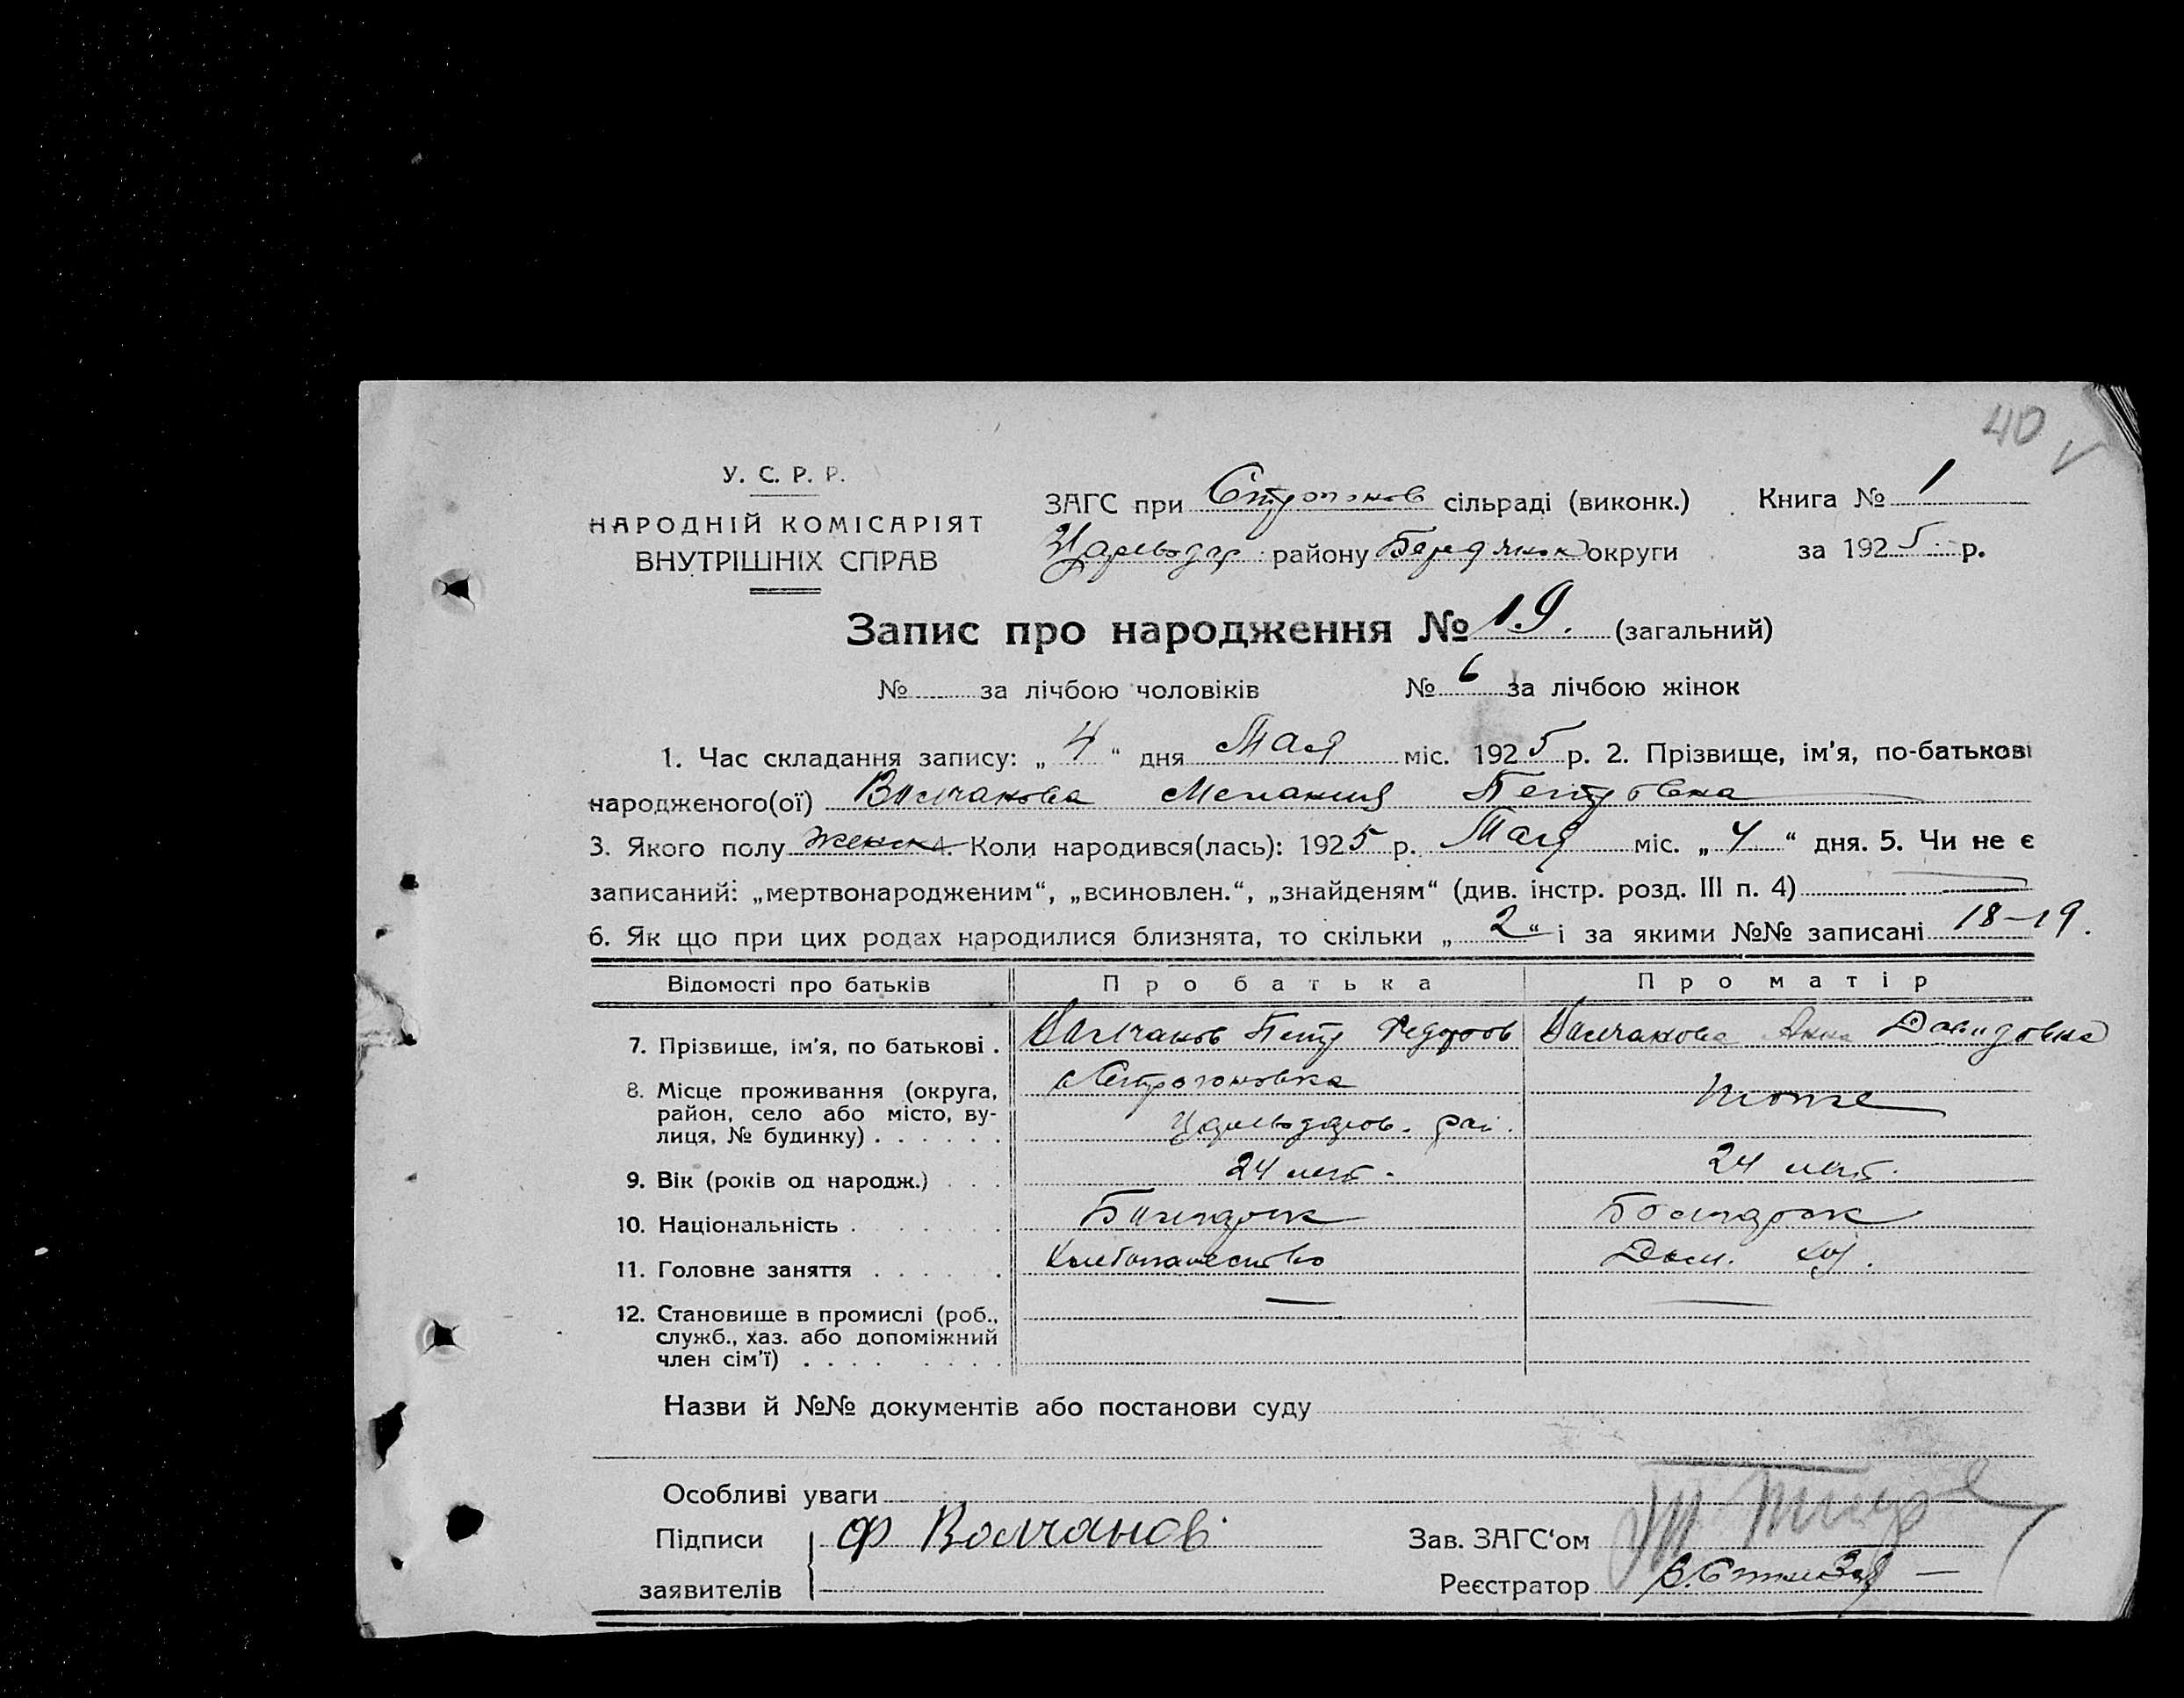 40
У. С. Р. Р.
НАРОДНІЙ КОМІСАРІЯТ
ВНУТРІШНІХ СПРАВ
ЗАГС при Строгонов сільраді (виконк.) Книга № 1
Цареводар району Бердянск округи за 1925 р.
Запис про народження № 19. (загальний)
№ за лічбою чоловіків № 6 за лічбою жінок
1. Час складання запису: „ 4 “ дня Мая міс. 1925 р. 2. Прізвище, ім'я, по-батькові
народженого(ої) Волчанова Мелания Петровна
3. Якого полу женск 4. Коли народився(лась): 1925 р. Мая міс. „ 4 “ дня. 5. Чи не є
записаний: „мертвонародженим“, „всиновлен.“, „знайденям“ (див. інстр. розд. III п. 4)
6. Як що при цих родах народилися близнята, то скільки „ 2 “ і за якими №№ записані 18-19.
Відомості про батьків Про батька Про матір
7. Прізвище, ім'я, по батькові . Волчанов Петр Федоров Волчанова Анна Давидовна
8. Місце проживання (округа, с Строгоновка тоже
район, село або місто, ву-
лиця, № будинку) . . . . . . Цареводаров. рай.
9. Вік (років од народж.) . . . 24 лет. 24 лет.
10. Національність . . . . . Болгарск Болгарск
11. Головне заняття . . . . . . Хлебопашество Дом. хоз.
12. Становище в промислі (роб.,
служб., хаз. або допоміжний
член сім'ї) . . . . . . . .
Назви й №№ документів або постанови суду
Особливі уваги
Підписи Ф Волчанов Зав. ЗАГС'ом
заявителів Реєстратор